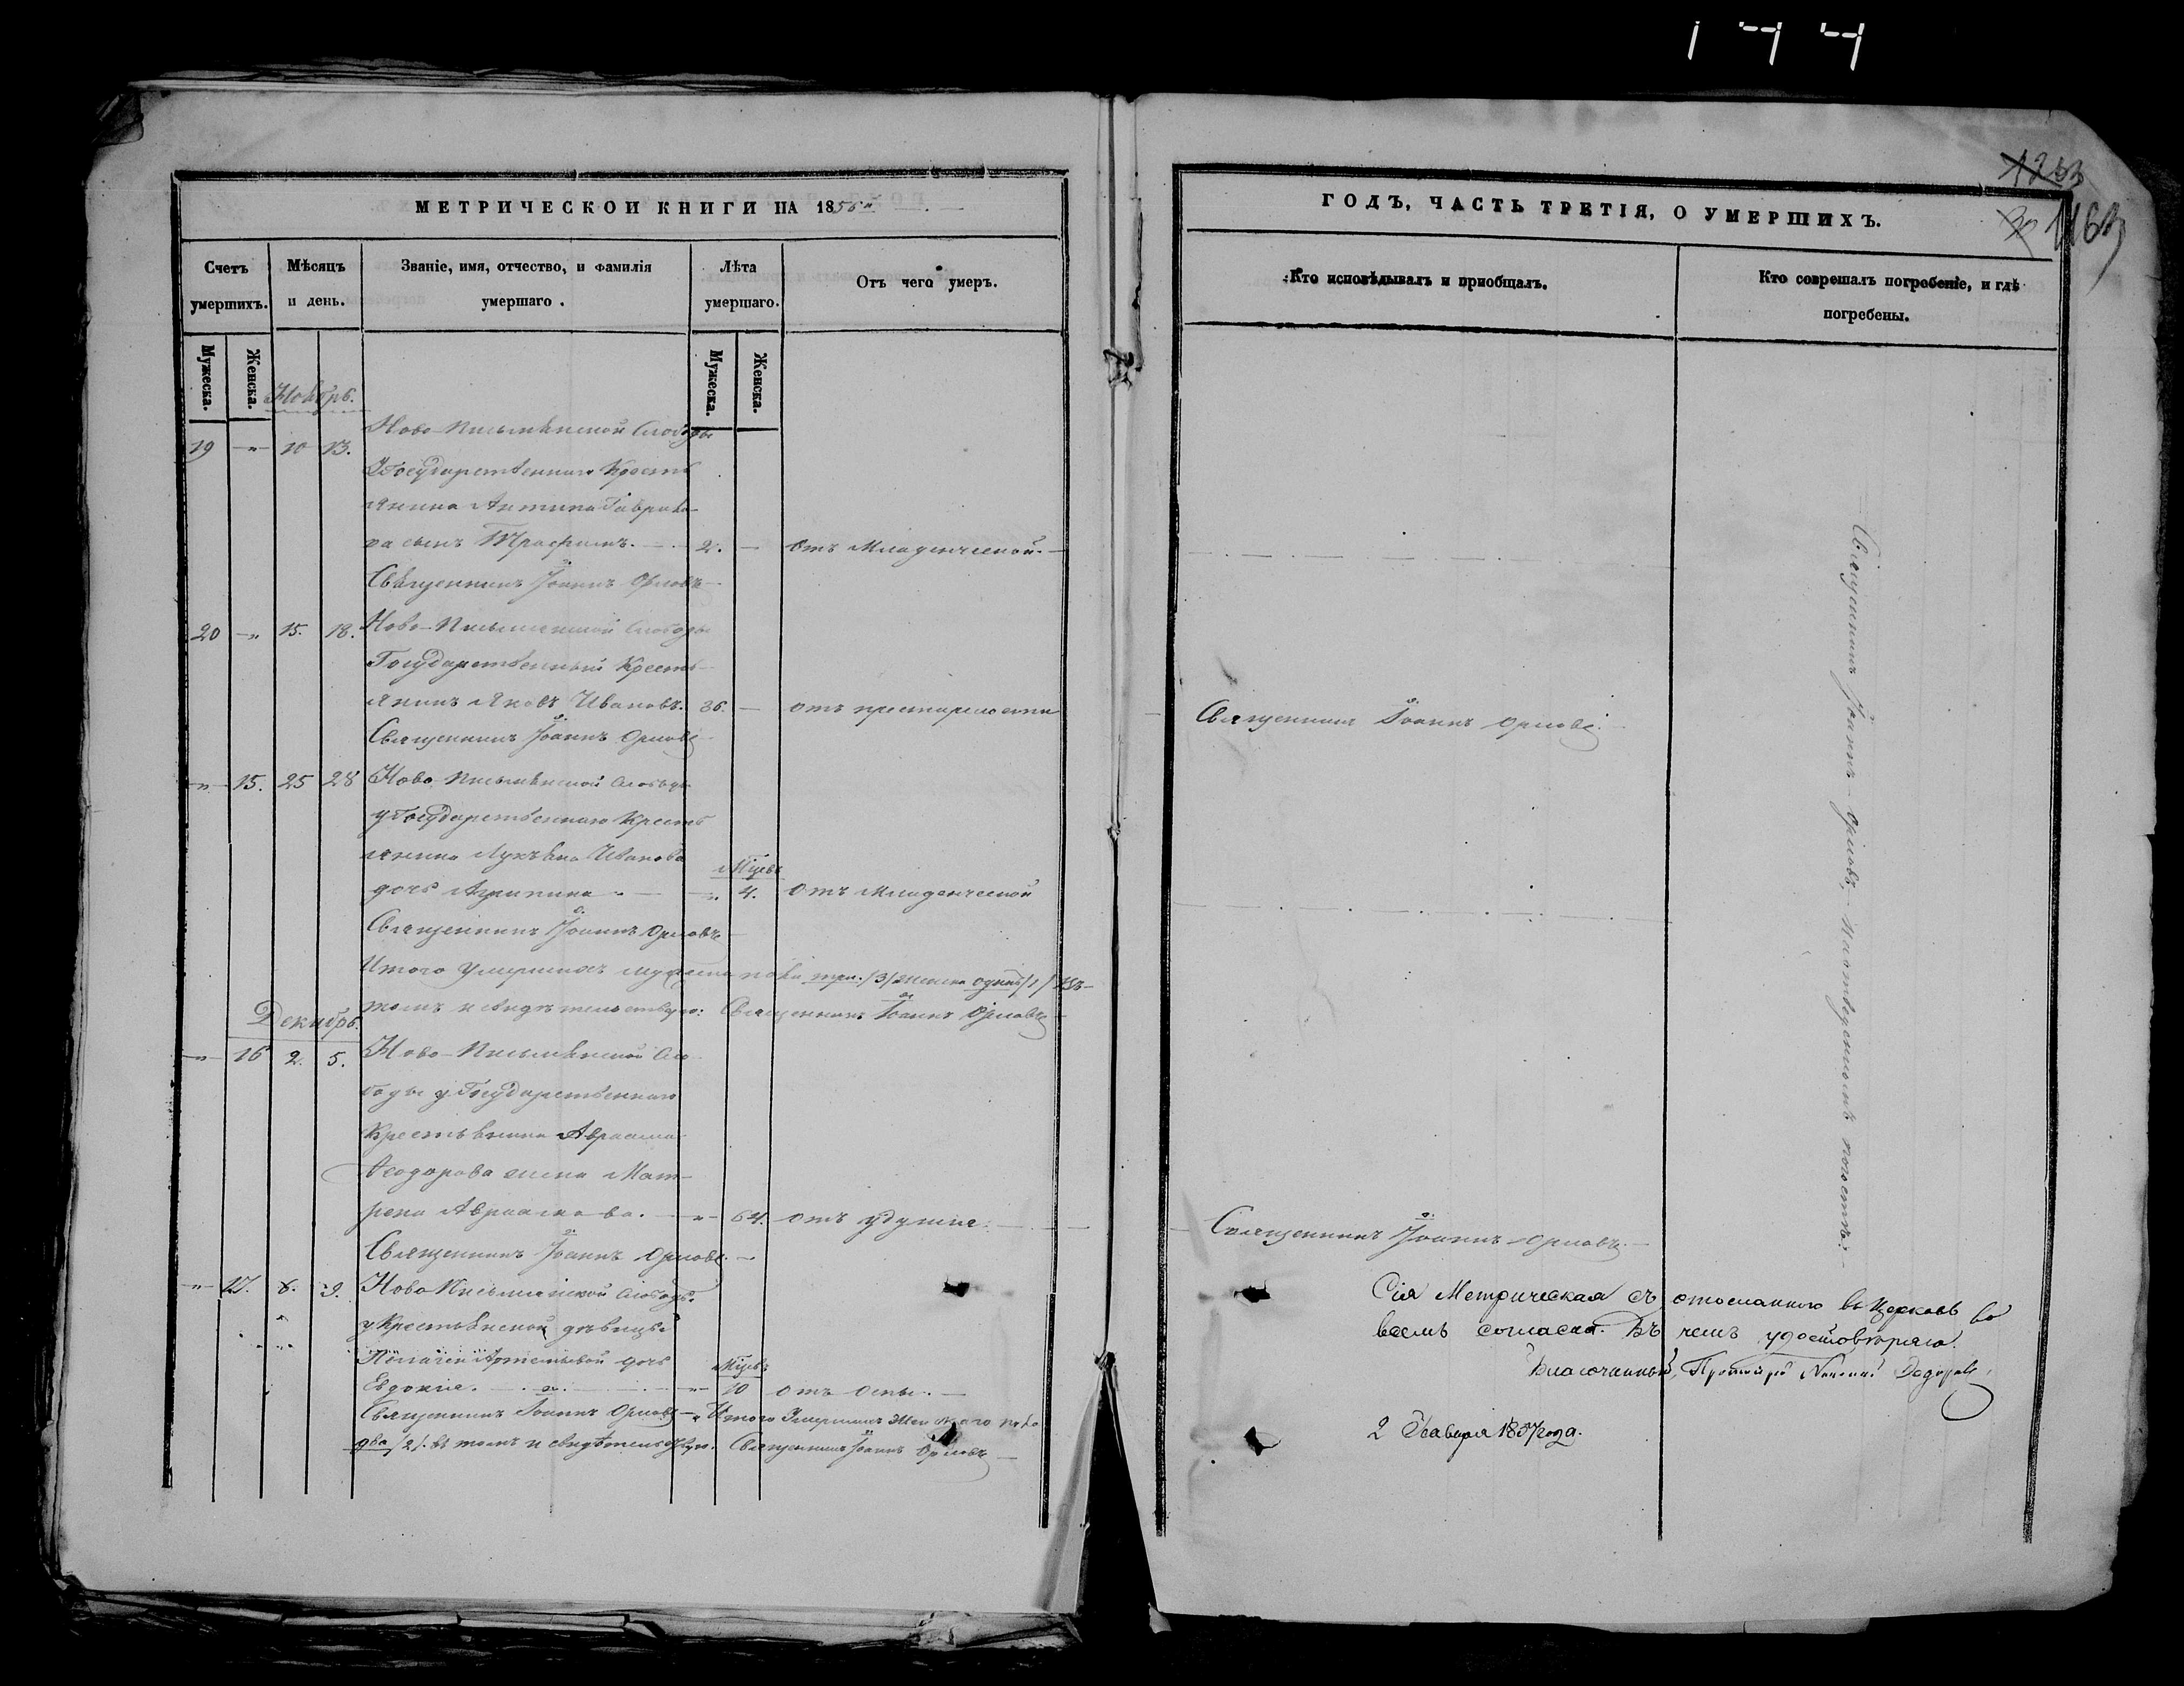 144
МЕТРИЧЕСКОЙ КНИГИ НА 1856й
Счетъ умершихъ.
Мѣсяцъ и день.
Званіе, имя, отчество, и фамилія умершаго.
Лѣта умершаго.
Отъ чего умеръ.
Мужеска.
Женска.
Мужеска.
Женска.
Ноябрь.
19 — „ — 10 13. Ново-Письмянской Слободы
Государственнаго Кресть
янина Антипа Гаврило
ва сынъ Трофимъ. — 2. — Отъ Младенческой. —
Священникъ Іоаннъ Орловъ
20 — „ 15. 18. Ново-Письмянской Слободы
Государственный Кресть
янинъ Яковъ Ивановъ. 86. — отъ престарелости
Священникъ Іоаннъ Орловъ
„ 15. 25 28 Ново-Письмянской Слободы
у Государственнаго Кресть
янина Лукьяна Иванова
Мѣсяц
дочь Агрипина — „ 4. отъ Младенческой
Священникъ Іоаннъ Орловъ
Итого умершихъ мужеска пола три /3/ женска одинъ /1/ Въ
томъ и свидѣтельствую: Священникъ Іоаннъ Орловъ
Декабрь.
„ 16 2. 5. Ново-Письмянской Сло
боды у Государственнаго
Крестьянина Авраама
Ѳеодорова жена Мат-
рена Авраамова. — „ 64. отъ удушья. —
Священникъ Іоаннъ Орловъ. —
„ 17. 6. 9. Ново-Письмянской Слободы
у Крестьянской дѣвицы
Пелагеи Артемьевой дочь
Мѣсяц
Евдокія. — „ 10 отъ Оспы. —
Священникъ Іоаннъ Орловъ — Итого Умершихъ Женскаго пола
два /2/. въ томъ и свидѣтельствую. Священникъ Іоаннъ Орловъ —
1253
1163
ГОДЪ, ЧАСТЬ ТРЕТІЯ, О УМЕРШИХЪ.
Кто исповѣдывалъ и пріобщалъ.
Кто соврешалъ погребеніе, и гдѣ погребены.
Священникъ Іоаннъ Орловъ.
Священникъ Іоаннъ Орловъ. —
Священникъ Іоаннъ Орловъ,
Сія Метрическая съ отосланною въ Церковь во
всемъ согласна. Въ чемъ удостовѣряю.
Благочинный, Протоіерей
2 Января 1857 года.